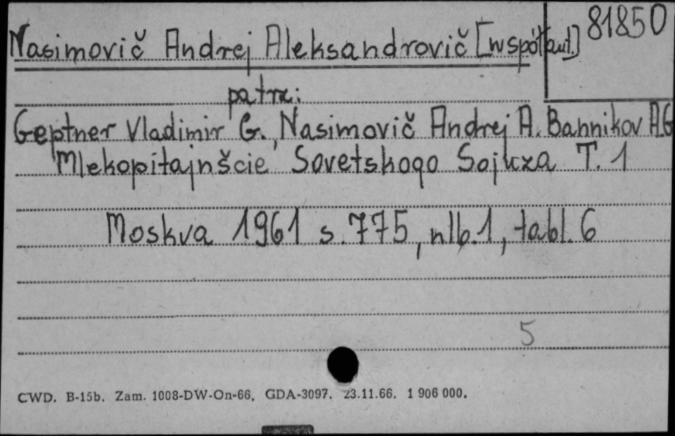 Nasimovič Andrej Aleksandrovič [współaut.] 81850
patrz:
Geptner Vladimir G., Nasimovič Andrej A. Bannikov A.G
Mlekopitajnščie Sovetskogo Sojuza T. 1
Moskva 1961 s. 775, nlb. 1, tabl. 6
5
CWD. B-15b. Zam. 1008-DW-On-66, GDA-3097. 23.11.66. 1 906 000.